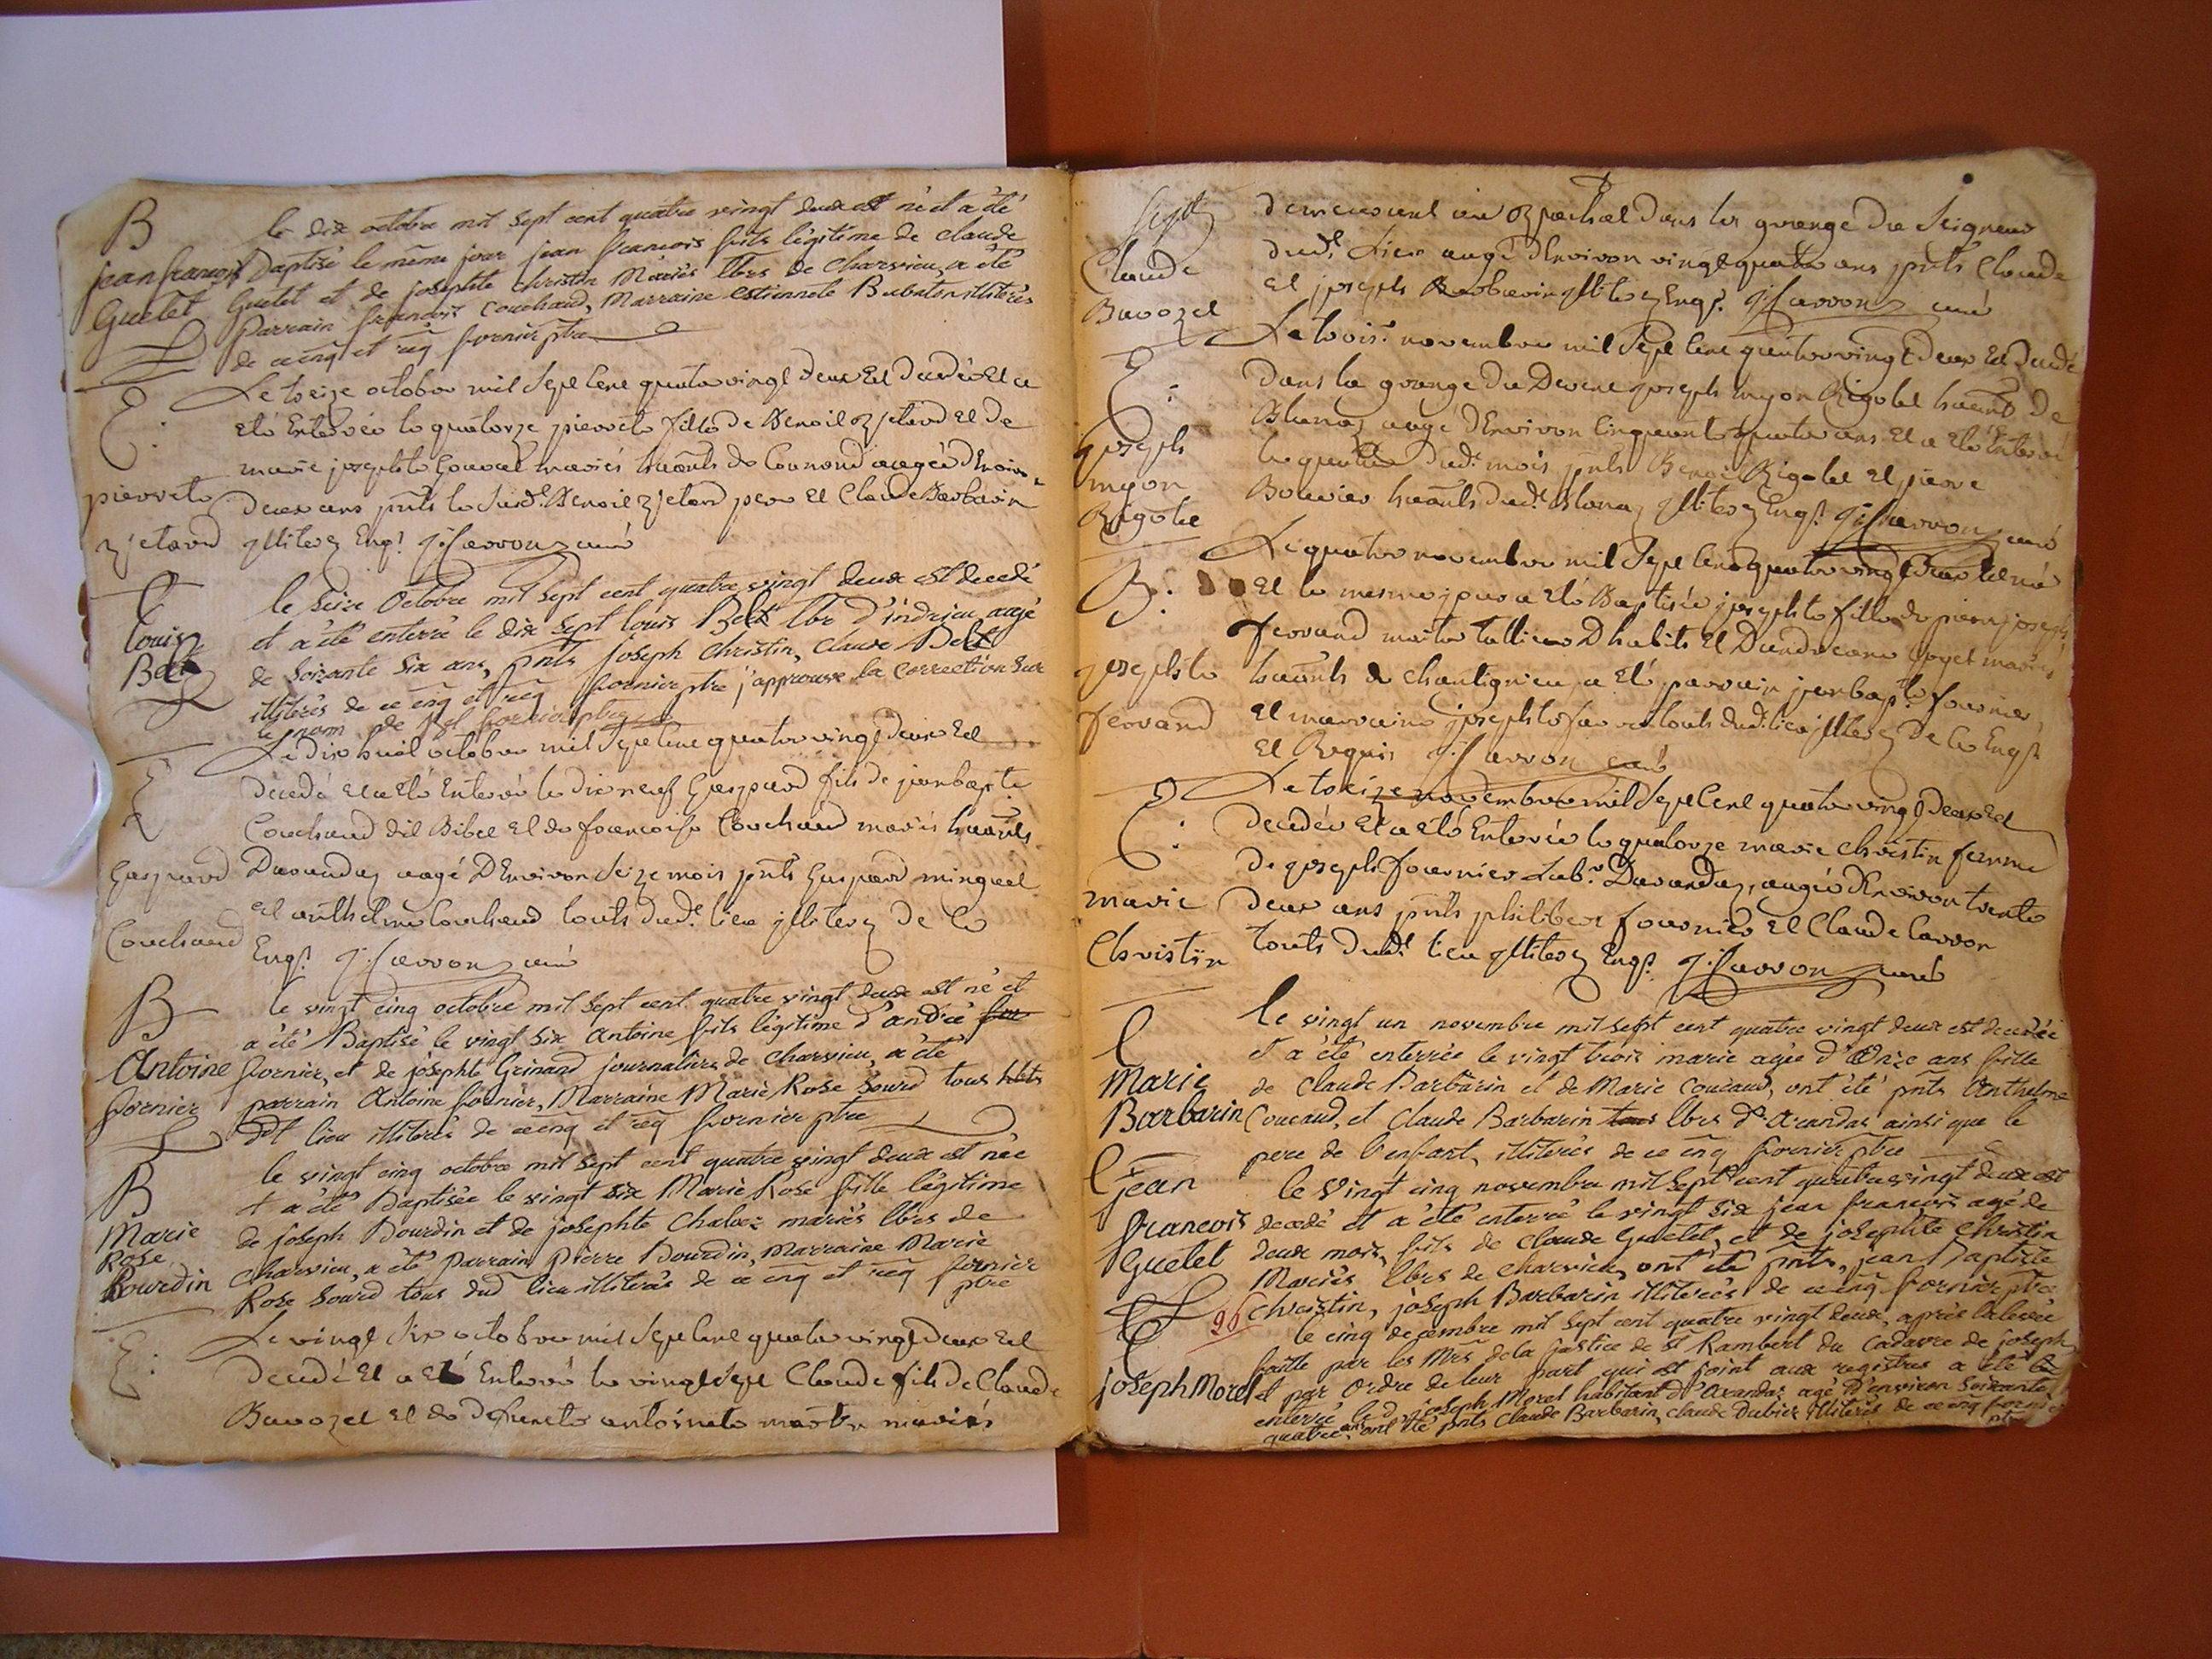 B
jean francois
Guelet
le dix octobre mil sept cent quatre vingt deux est né et a été
Baptisé le même jour jean francois fils légitime de claude
Guelet et de josephte christin Mariés lbrs de Charvieu, a été
Parrain francois Couchaud, Marraine estiennete Babaton illiterés
de ce enq et req fornier ptre
E:
pierrete
Le treize octobre mil sept cent quatre vingt deux est decedée et a
eté enterrée le quatorze pierrete fille de Benoit et de
marie josephte mariés de agée d'environ
deux ans pnts le sud. Benoit pere et Claude Barbarin
illiterez enqs J: Carron curé
E
louis
Belt
le seize Octobre mil sept cent quatre vingt deux est decedé
et a été enterré le dix sept louis Belt lbr d'indrieu agé
de soixante six ans, pnts joseph christin, claude Belt
illiterés de ce enq et req fornier ptre j'approuve la correction sur
le nom de Belt fornier ptre
E
Gaspard
Couchaud
Le dix huit octobre mil sept cent quatre vingt deux est
decedé et a eté enterré le dix neuf Gaspard fils de jean bapte
Couchaud dit Bibet et de francoise Couchaud mariés
Darandaz agé d'environ seize mois pnts Gaspard minguet
et anthelme Couchaud touts dud. lieu illiterez de ce
enqs J: Carron curé
B
Antoine
fornier
le vingt cinq octobre mil sept cent quatre vingt deux est né et
a été Baptisé le vingt six Antoine fils légitime d'andré
fornier, et de josephte Grinand journaliers de Charvieu, a été
parrain Antoine fornier, Marraine Marie Rose Sourd tous
ddt lieu illiterés de ce enq et req fornier ptre
B
Marie
Rose
Bourdin
le vingt cinq octobre mil sept cent quatre vingt deux est née
et a été Baptisée le vingt six Marie Rose fille légitime
de joseph Bourdin et de josephte Chaloz mariés lbrs de
Charvieu, a été Parrain Pierre Bourdin, Marraine Marie
Rose Sourd tous dud lieu illiterés de ce enq et req fornier
ptre
E:
Le vingt six octobre mil sept cent quatre vingt deux est
decedé et a eté enterré le vingt sept Claude fils de Claude
Bavozet et de defuncte antoinete mariés
Claude
Bavozet
demeurant dans la grange du Seigneur
dud. Lieu agé d'environ vingt quatre ans pnts Claude
et joseph Barbarin illiterez enqs J: Carron curé
E:
joseph
myon
Rigolet
Le trois novembre mil sept cent quatre vingt deux est decedé
dans la grange du joseph myon Rigolet de
Blanaz agé d'environ cinquante quatre ans et a eté enterré
le quatre dud. mois pnts Benoit Rigolet et pierre
Bouvier dud. Blanaz illiterez enqs J: Carron curé
B:
josephte
ferrand
Le quatre novembre mil sept cent quatre vingt deux est née
et le mesme jour a eté Baptisée josephte fille de pierre joseph
ferrand maitre tallieur D'habits et D'andreane mariés
de Chantignieu, a eté parrain jean bapte fournier,
et marraine josephte touts dud. lieu illiterez de ce enqs
et Requis J: Carron curé
E:
marie
Christin
Le treize novembre mil sept cent quatre vingt deux est
decedée et a eté enterrée le quatorze marie Christin femme
de joseph fournier Labr. Darandaz, agée d'environ trente
deux ans pnts philibert fournier et Claude Carron
touts dud. lieu illiterez enqs J: Carron curé
E
Marie
Barbarin
le vingt un novembre mil sept cent quatre vingt deux est decedée
et a été enterrée le vingt trois marie agée d'Onze ans fille
de Claude Barbarin et de Marie Coucaud, ont été pnts Anthelme
Coucaud, et Claude Barbarin tous lbrs d'Arandas ainsi que le
pere de l'enfant, illiterés de ce enq fornier ptre
E
jean
francois
Guelet
le Vingt cinq novembre mil sept cent quatre vingt deux est
decedé et a été enterré le vingt six jean francois agé de
deux mois, fils de claude Guelet, et de josephte christin
Mariés lbrs de charvieu, ont été pnts, jean Baptiste
Christin, joseph Barbarin illiterés de ce enq fornier ptre
26
E
joseph Morel
le cinq decembre mil sept cent quatre vingt deux, après la levée
faitte par les Mrs de la justice de st Rambert du Cadavre de joseph
et par Ordre de leur part qui est joint aux registres a été
enterré le d. joseph Morel habitant d'Arandas agé d'environ soixante
quatre ans, ont été pnts Claude Barbarin, claude Dubiez illiterés de ce enq fornier
ptre